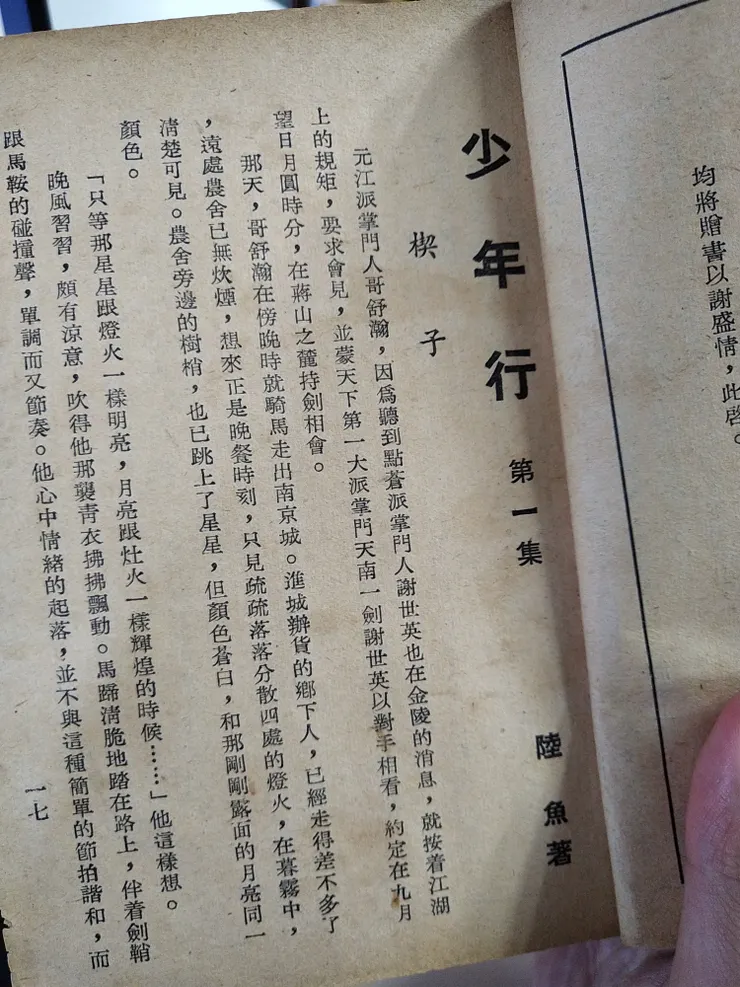 均將贈書以謝盛情，此啓。
少年行 第一集 陸魚著
楔子
元江派掌門人哥舒瀚，因爲聽到點蒼派掌門人謝世英也在金陵的消息，就按着江湖
上的規矩，要求會見，並蒙天下第一大派掌門天南一劍謝世英以對手相看，約定在九月
望日月圓時分，在蔣山之麓持劍相會。
那天，哥舒瀚在傍晚時就騎馬走出南京城。進城辦貨的鄉下人，已經走得差不多了
，遠處農舍已無炊煙，想來正是晚餐時刻，只見疏疏落落分散四處的燈火，在暮霧中，
清楚可見。農舍旁邊的樹梢，也已跳上了星星，但顏色蒼白，和那剛剛露面的月亮同一
顏色。
「只等那星星跟燈火一樣明亮，月亮跟灶火一樣輝煌的時候……」他這樣想。
晚風習習，頗有涼意，吹得他那襲青衣拂拂飄動。馬蹄清脆地踏在路上，伴着劍鞘
跟馬鞍的碰撞聲，單調而又節奏。他心中情緒的起落，並不與這種簡單的節拍諧和，而
一七